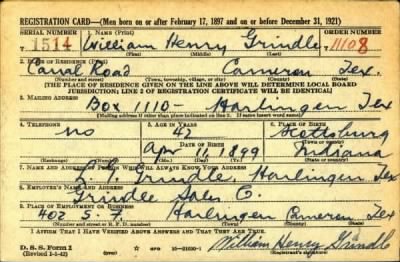 REGISTRATION CARD—(Men born on or after February 17, 1897 and on or before December 31, 1921)
SERIAL NUMBER 1. NAME (Print) ORDER NUMBER
T 1514 William Henry Grindle 11108
(First) (Middle) (Last)
2. PLACE OF RESIDENCE (Print)
Canal Road Cameron Tex.
(Number and street) (Town, township, village, or city) (County) (State)
[THE PLACE OF RESIDENCE GIVEN ON THE LINE ABOVE WILL DETERMINE LOCAL BOARD JURISDICTION; LINE 2 OF REGISTRATION CERTIFICATE WILL BE IDENTICAL]
3. MAILING ADDRESS
Box 1110 - Harlingen Tex
[Mailing address if other than place indicated on line 2. If same insert word same]
4. TELEPHONE 5. AGE IN YEARS 6. PLACE OF BIRTH
no 42 Scottsburg
DATE OF BIRTH (Town or county)
Apr 11, 1899 Indiana
(Exchange) (Number) (Mo.) (Day) (Yr.) (State or country)
7. NAME AND ADDRESS OF PERSON WHO WILL ALWAYS KNOW YOUR ADDRESS
Grindle, Harlingen Tex
8. EMPLOYER'S NAME AND ADDRESS
Grindle Sales C.
9. PLACE OF EMPLOYMENT OR BUSINESS
402 S. F. Harlingen Cameron Tex
(Number and street or R. F. D. number) (Town) (County) (State)
I AFFIRM THAT I HAVE VERIFIED ABOVE ANSWERS AND THAT THEY ARE TRUE.
D. S. S. Form 1
(Revised 1-1-42) (over) William Henry Grindle
(Registrant's signature)